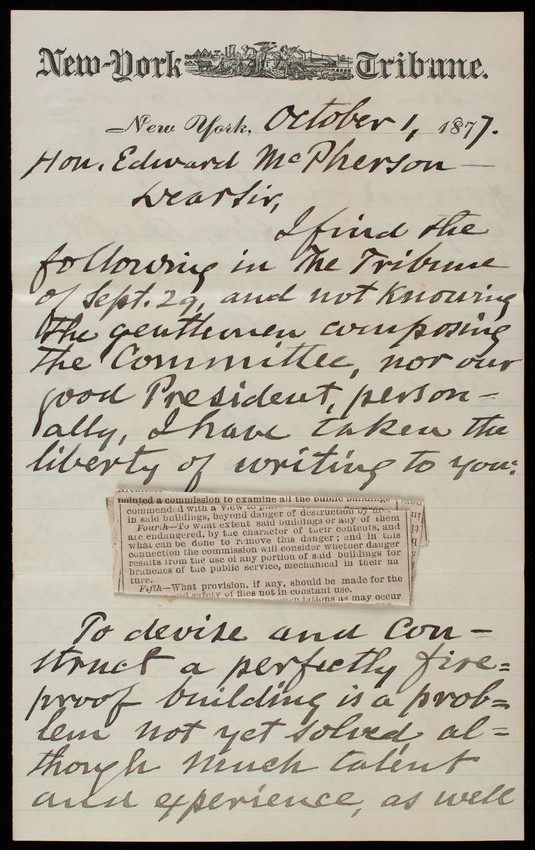 New-York Tribune.
New York, October 1, 1877.
Hon. Edward McPherson
Dear Sir,
I find the
following in The Tribune
of Sept. 29, and not knowing
the gentlemen composing
the Committee, nor our
good President, person-
ally, I have taken the
liberty of writing to you:
pointed a commission to examine all the public buildings
commended with a view to
in said buildings, beyond danger of destruction by
Fourth—To what extent said buildings or any of them
are endangered, by the character of their contents, and
what can be done to remove this danger; and in this
connection the commission will consider whether danger
results from the use of any portion of said buildings for
branches of the public service, mechanical in their na
ture.
Fifth—What provision, if any, should be made for the
safety of files not in constant use.
as may occur
To devise and Con-
struct a perfectly fire=
proof building is a prob=
lem not yet solved, al=
though much talent
and experience, as well